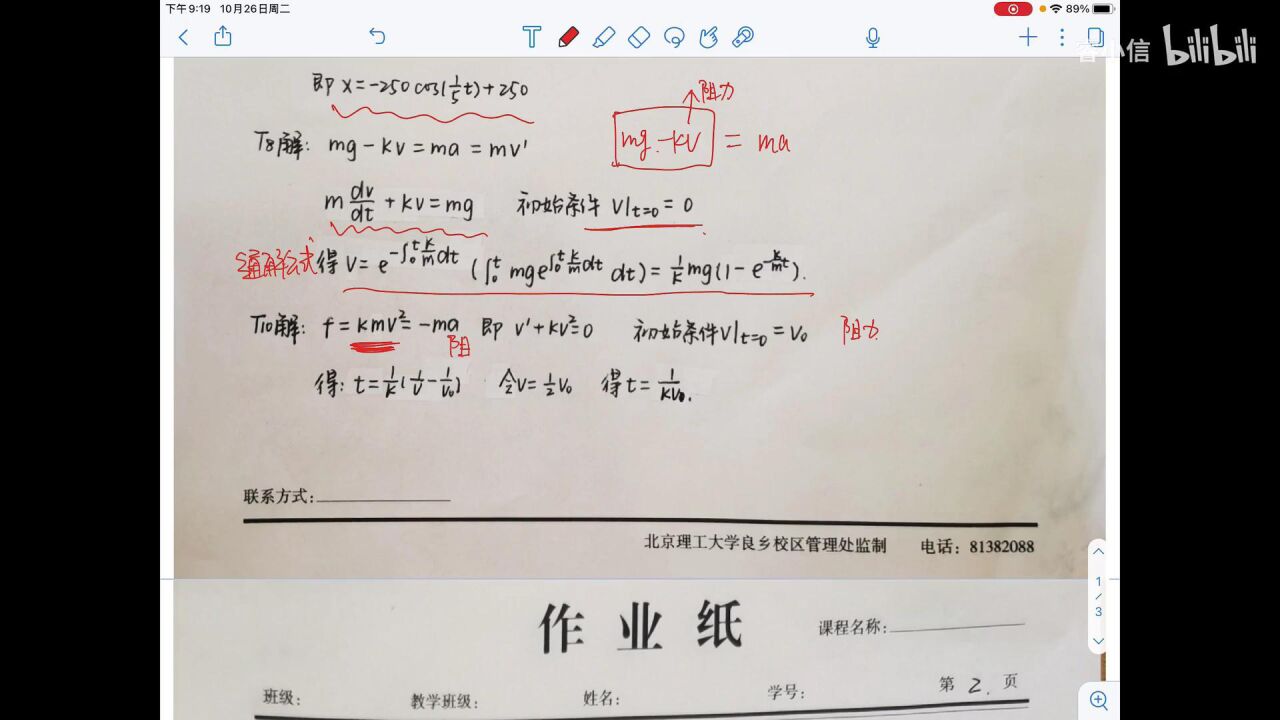 下午9:19 10月26日周二
89%
睿小信 bilibili
即 x=-250cos(1/5 t)+250
阻力
T8解: mg-kv=ma=mv'
mg-kv = ma
m dv/dt + kv = mg 初始条件 v|t=0 = 0
通解公式 得 v = e^{-∫₀ᵗ k/m dt} (∫₀ᵗ mg e^{∫₀ᵗ k/m dt} dt) = 1/k mg(1-e^{-k/m t}).
T10解: f=kmv²=-ma 即 v'+kv²=0 初始条件v|t=0=v₀ 阻力
阻
得: t=1/k(1/v-1/v₀) 令v=1/2 v₀ 得 t=1/kv₀.
联系方式:
北京理工大学良乡校区管理处监制 电话: 81382088
1/3
作业纸
课程名称:
班级: 教学班级: 姓名: 学号: 第 2. 页